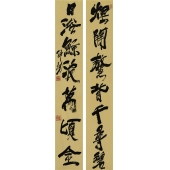 煙開鰲背千尋碧
日浴鯨波萬頃金